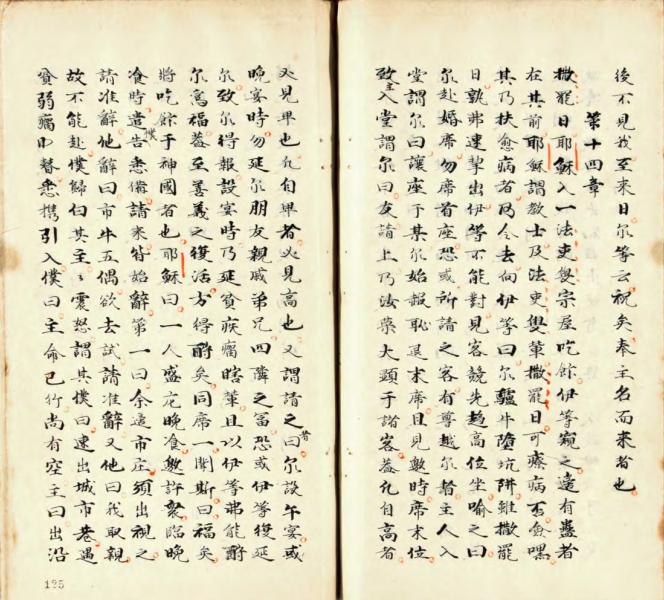 後不見我至來日尔等云祝矣奉主名而來者也
第十四章
撒罷日耶穌入一法吏𠁅宗屋吃餅伊等窺之適有蠱者
在其前耶穌謂教士及法吏𠁅輩撒罷日可療病否僉嘿
其乃扶愈病者乃令去向伊等曰尔驢牛墮坑阱雖撒罷
日孰弗速挈出伊等不能對見客競先趨高位坐喻之曰
尔赴婚席勿席首座恐或所請之客有尊越尔者主人入
堂謂尔曰讓座于某尔始報恥退末席且見邀時席末位
致主入堂謂尔曰友請上乃汝榮大顯于諸客蓋凡自高者
必見卑也凡自卑者必見高也又謂請之者曰尔設午宴或
晚宴時勿延尔朋友親戚弟兄四隣之冨恐或伊等復延
尔致尔得報設宴時乃延貧疾瘸瞎輩且以伊等弗能酧
尔為福蓋至善義之復活方得酧矣同席一聞斯曰福矣
將吃餅于神國者也耶穌曰一人盛庀晚飡邀許衆臨晚
飡時遣僕告悉備請來特始辭第一曰余適市庄須出視之
請准辭他辭曰市牛五偶欲去試請准辭又他曰我取親
故不能赴僕歸白其主主震怒謂其僕曰速出城市巷遇
貧弱瘸瞽悉携引入僕曰主命已行尚有空主曰出沿
125